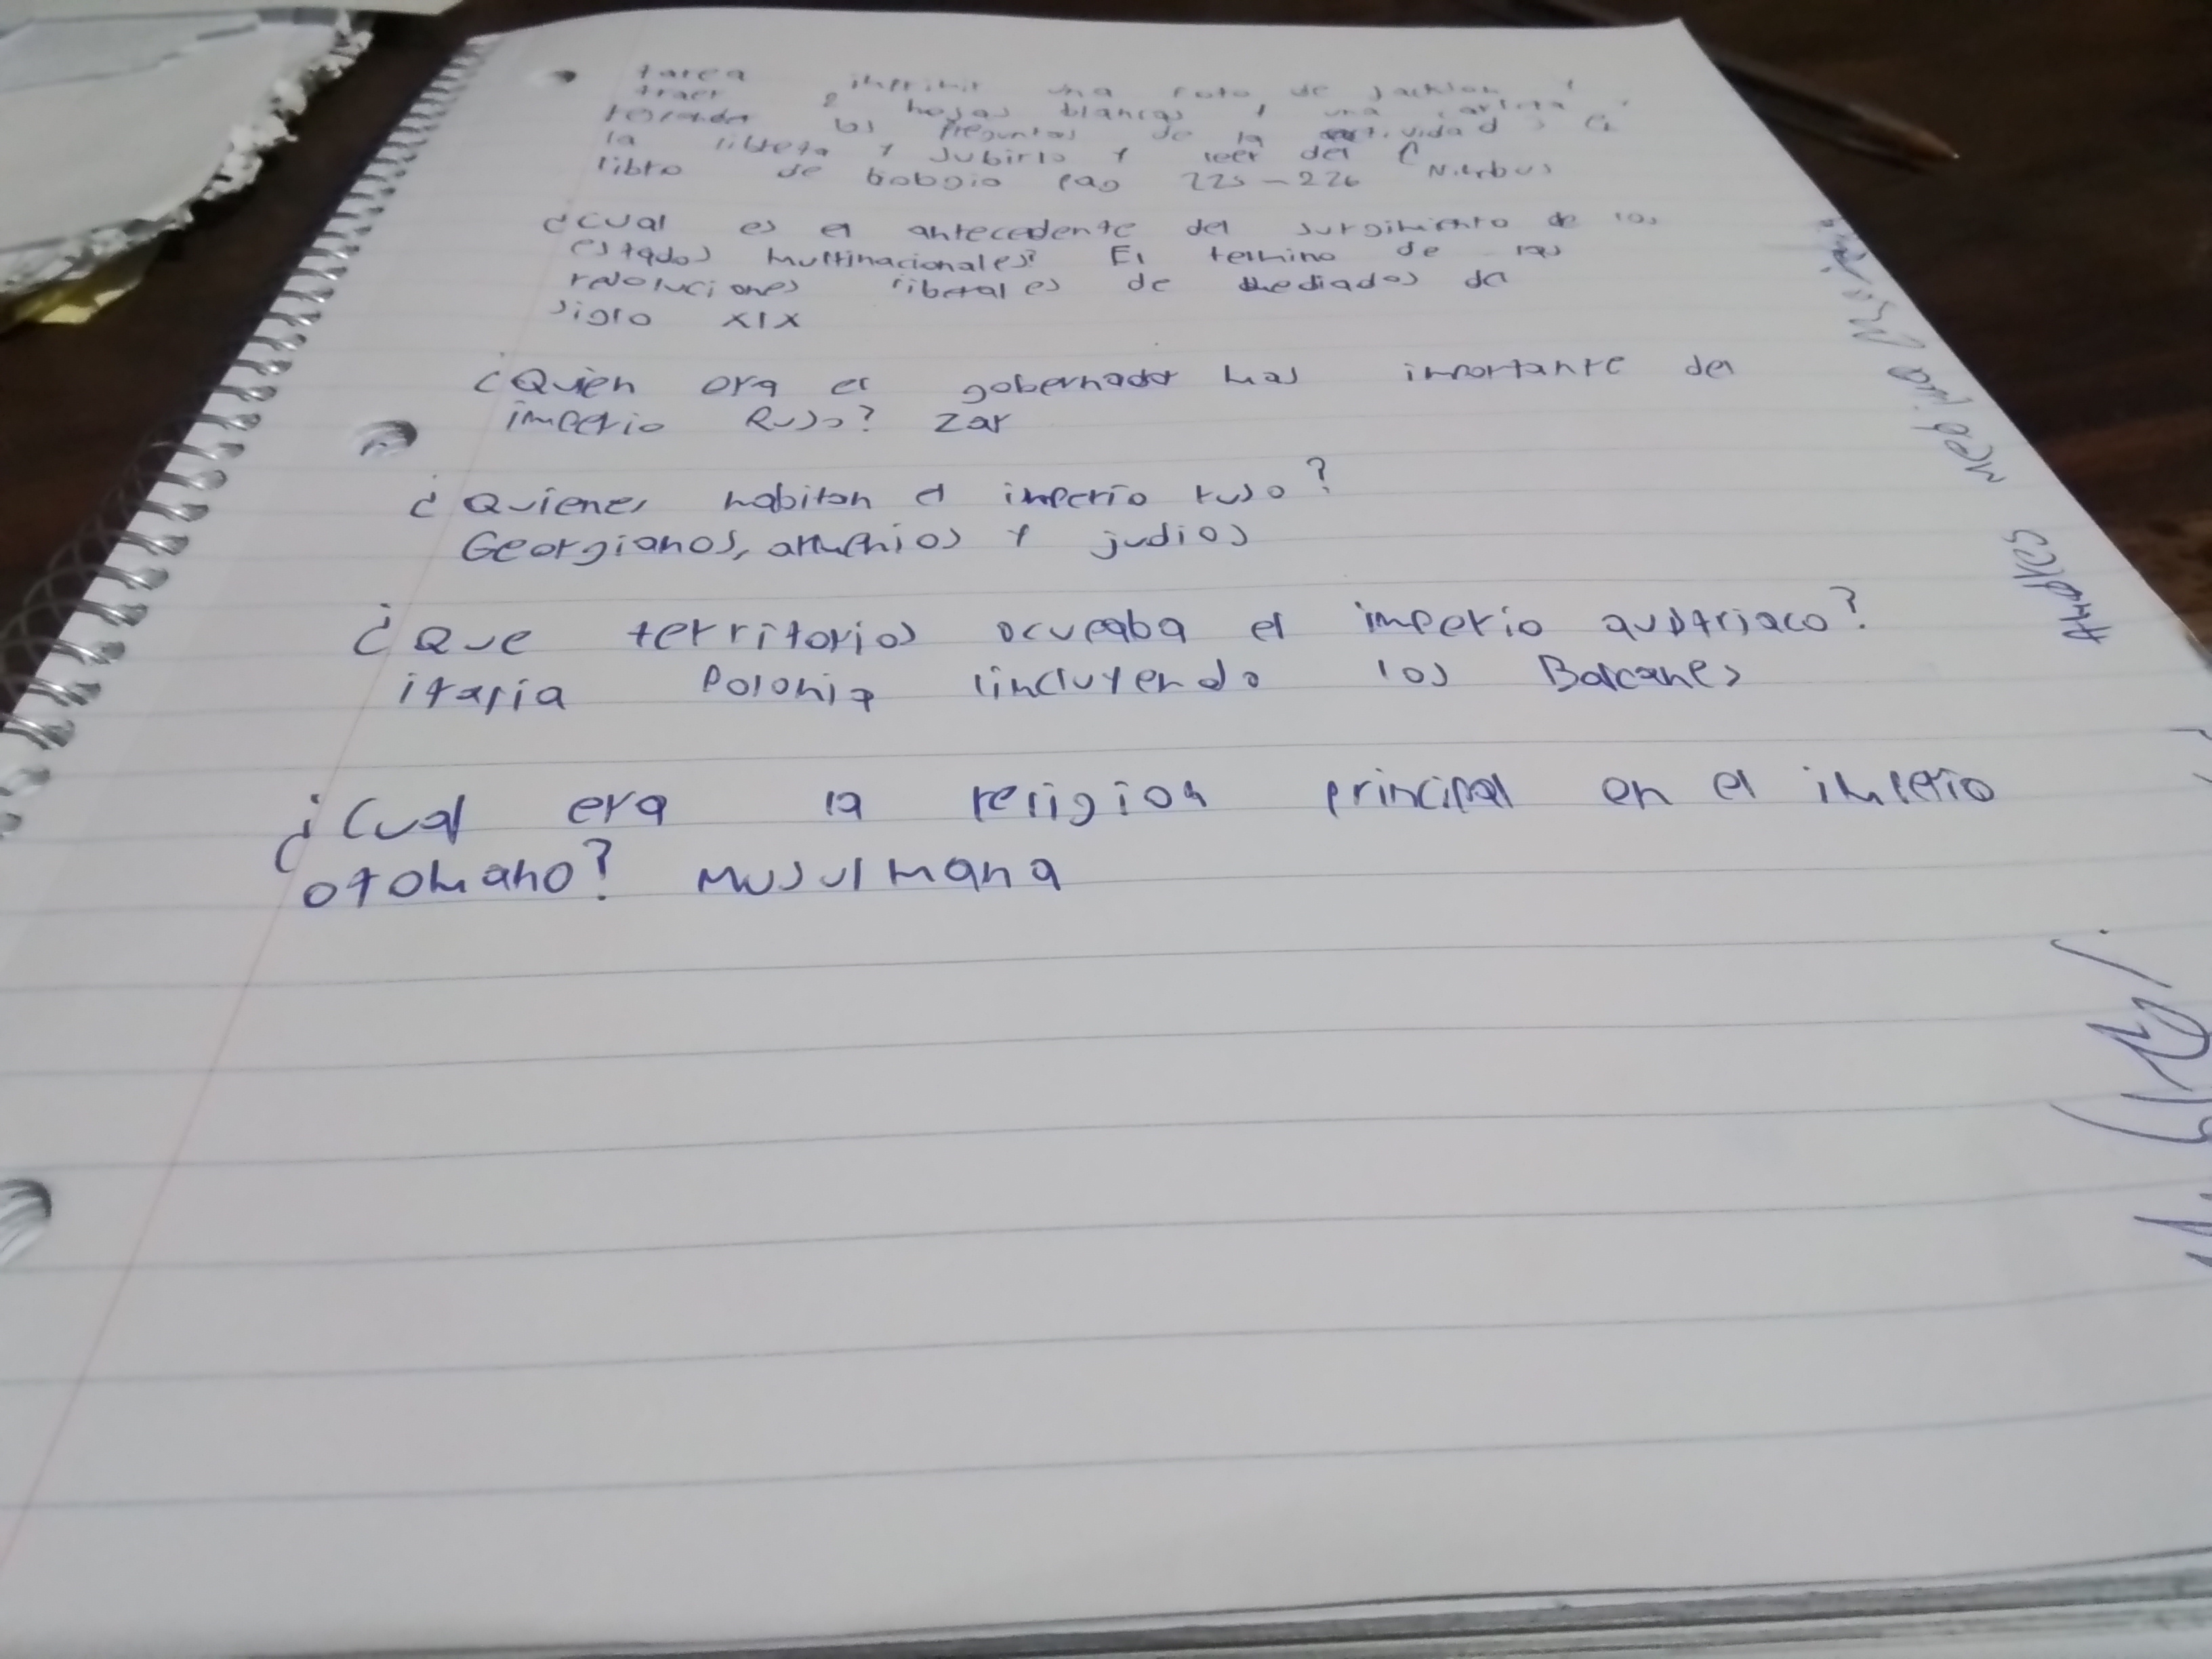 tarea imprimir una foto de Jackson y
traer 2 hojas blancas y una
las preguntas de la actividad
la libreta y subirlo y leer del
libro de biologia pag 225-226
¿cual es el antecedente del surgimiento de los
estados multinacionales? El termino de las
revoluciones liberales de mediados del
siglo XIX
¿Quien era el gobernador mas importante del
imperio Ruso? Zar
¿Quienes habitan el imperio ruso?
Georgianos, armenios y judios
¿Que territorios ocupaba el imperio austriaco?
italia Polonia incluyendo los Balcanes
¿Cual era la religion principal en el imperio
otomano? Musulmana